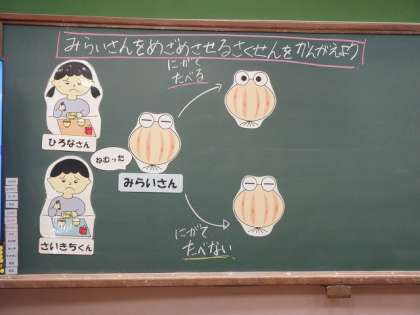 みらいさんをめざめさせるさくせんをかんがえよう
にがて
たべる
ひろなさん
ねむった
みらいさん
さいきちくん
にがて
たべない